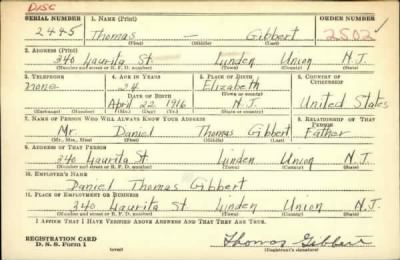 DISC
SERIAL NUMBER 1. NAME (Print) ORDER NUMBER
2445 Thomas — Gibbert 2502
(First) (Middle) (Last)
2. ADDRESS (Print)
340 Laurita St Linden Union N.J.
(Number and street or R. F. D. number) (Town) (County) (State)
3. TELEPHONE 4. AGE IN YEARS 5. PLACE OF BIRTH 6. COUNTRY OF CITIZENSHIP
none 24 Elizabeth
(Town or county)
DATE OF BIRTH
April 22 1916 N.J. United States
(Exchange) (Number) (Mo.) (Day) (Yr.) (State or country)
7. NAME OF PERSON WHO WILL ALWAYS KNOW YOUR ADDRESS 8. RELATIONSHIP OF THAT PERSON
Mr. Daniel Thomas Gibbert Father
(Mr., Mrs., Miss) (First) (Middle) (Last)
9. ADDRESS OF THAT PERSON
340 Laurita St Linden Union N.J.
(Number and street or R. F. D. number) (Town) (County) (State)
10. EMPLOYER'S NAME
Daniel Thomas Gibbert
11. PLACE OF EMPLOYMENT OR BUSINESS
340 Laurita St Linden Union N.J.
(Number and street or R. F. D. number) (Town) (County) (State)
I AFFIRM THAT I HAVE VERIFIED ABOVE ANSWERS AND THAT THEY ARE TRUE.
REGISTRATION CARD
D. S. S. Form 1 (over) Thomas Gibbert
(Registrant's signature)